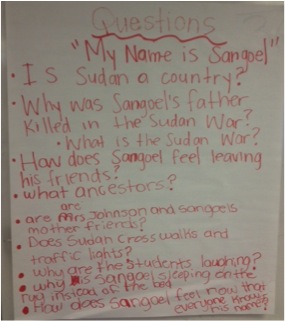 Questions
"My Name is Sangoel"
• Is Sudan a country?
• Why was Sangoel's father
killed in the Sudan War?
• What is the Sudan War?
• How does Sangoel feel leaving
his friends?
• what are ancestors?
• are Mrs Johnson and Sangoels
mother friends?
• Does Sudan cross walks and
traffic lights?
• why are the students laughing?
• why is Sangoel sleeping on the
rug instead of the bed
• How does Sangoel feel now that
everyone knows
his name?